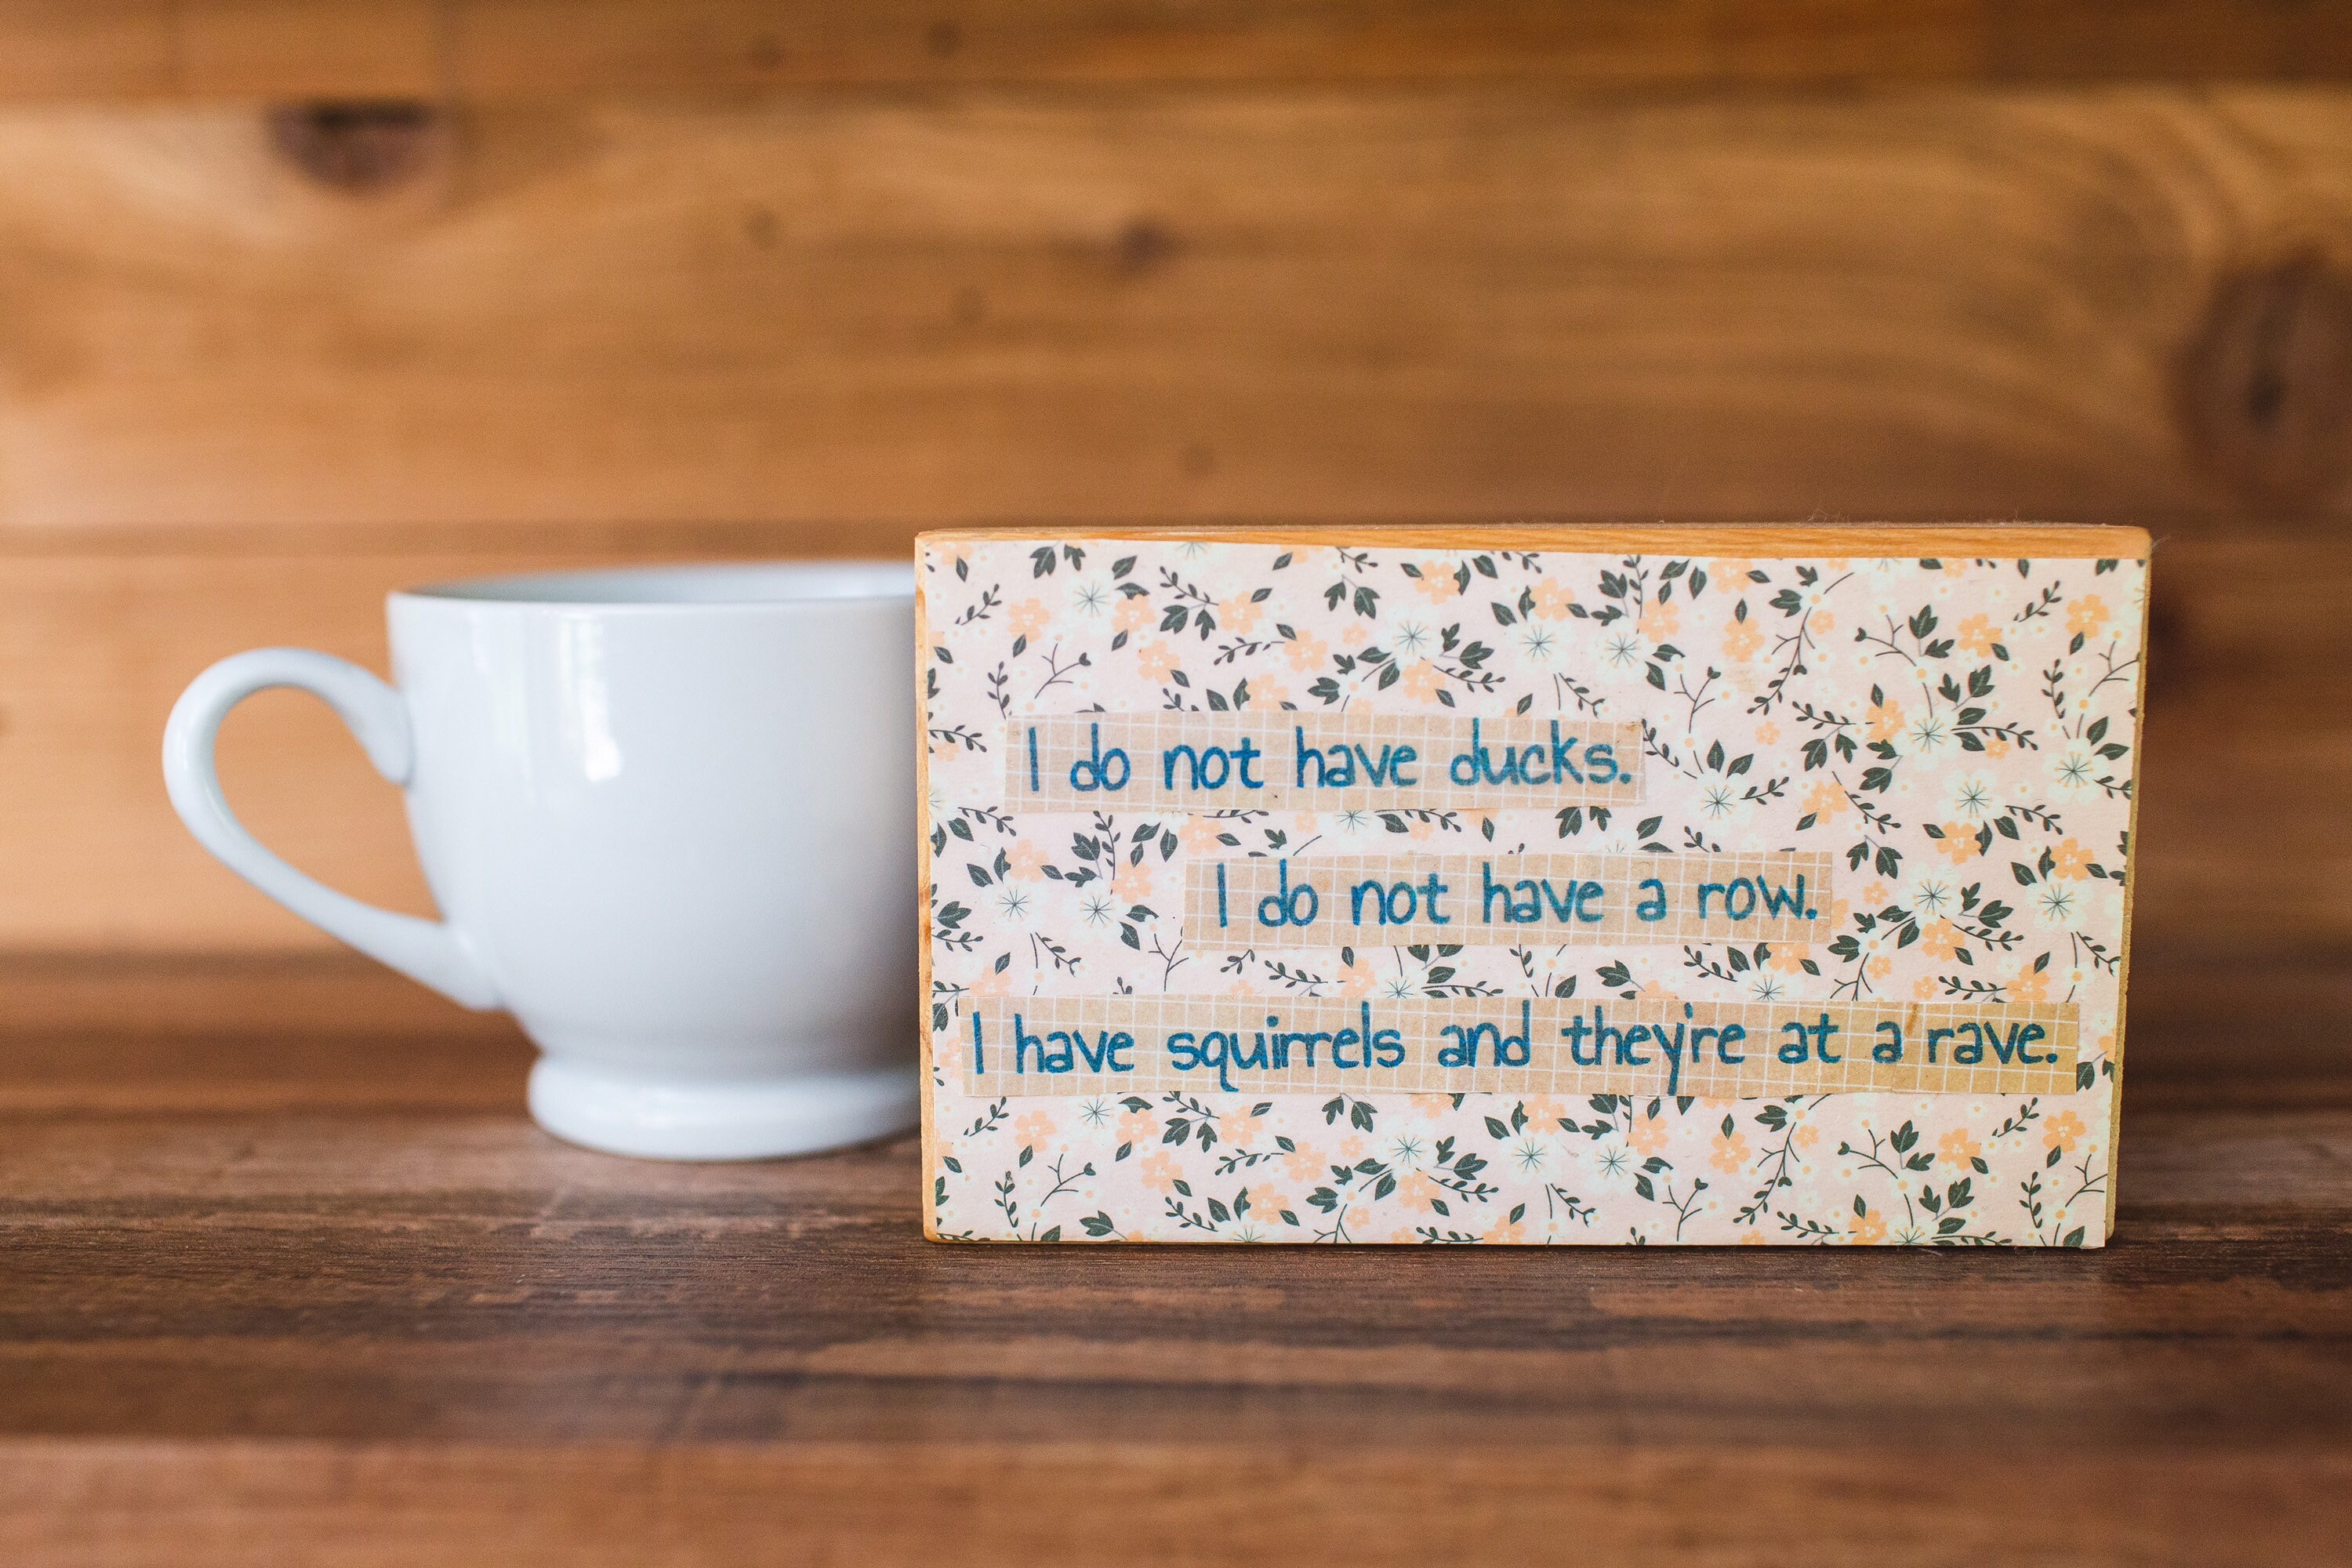 I do not have ducks.
I do not have a row.
I have squirrels and they're at a rave.